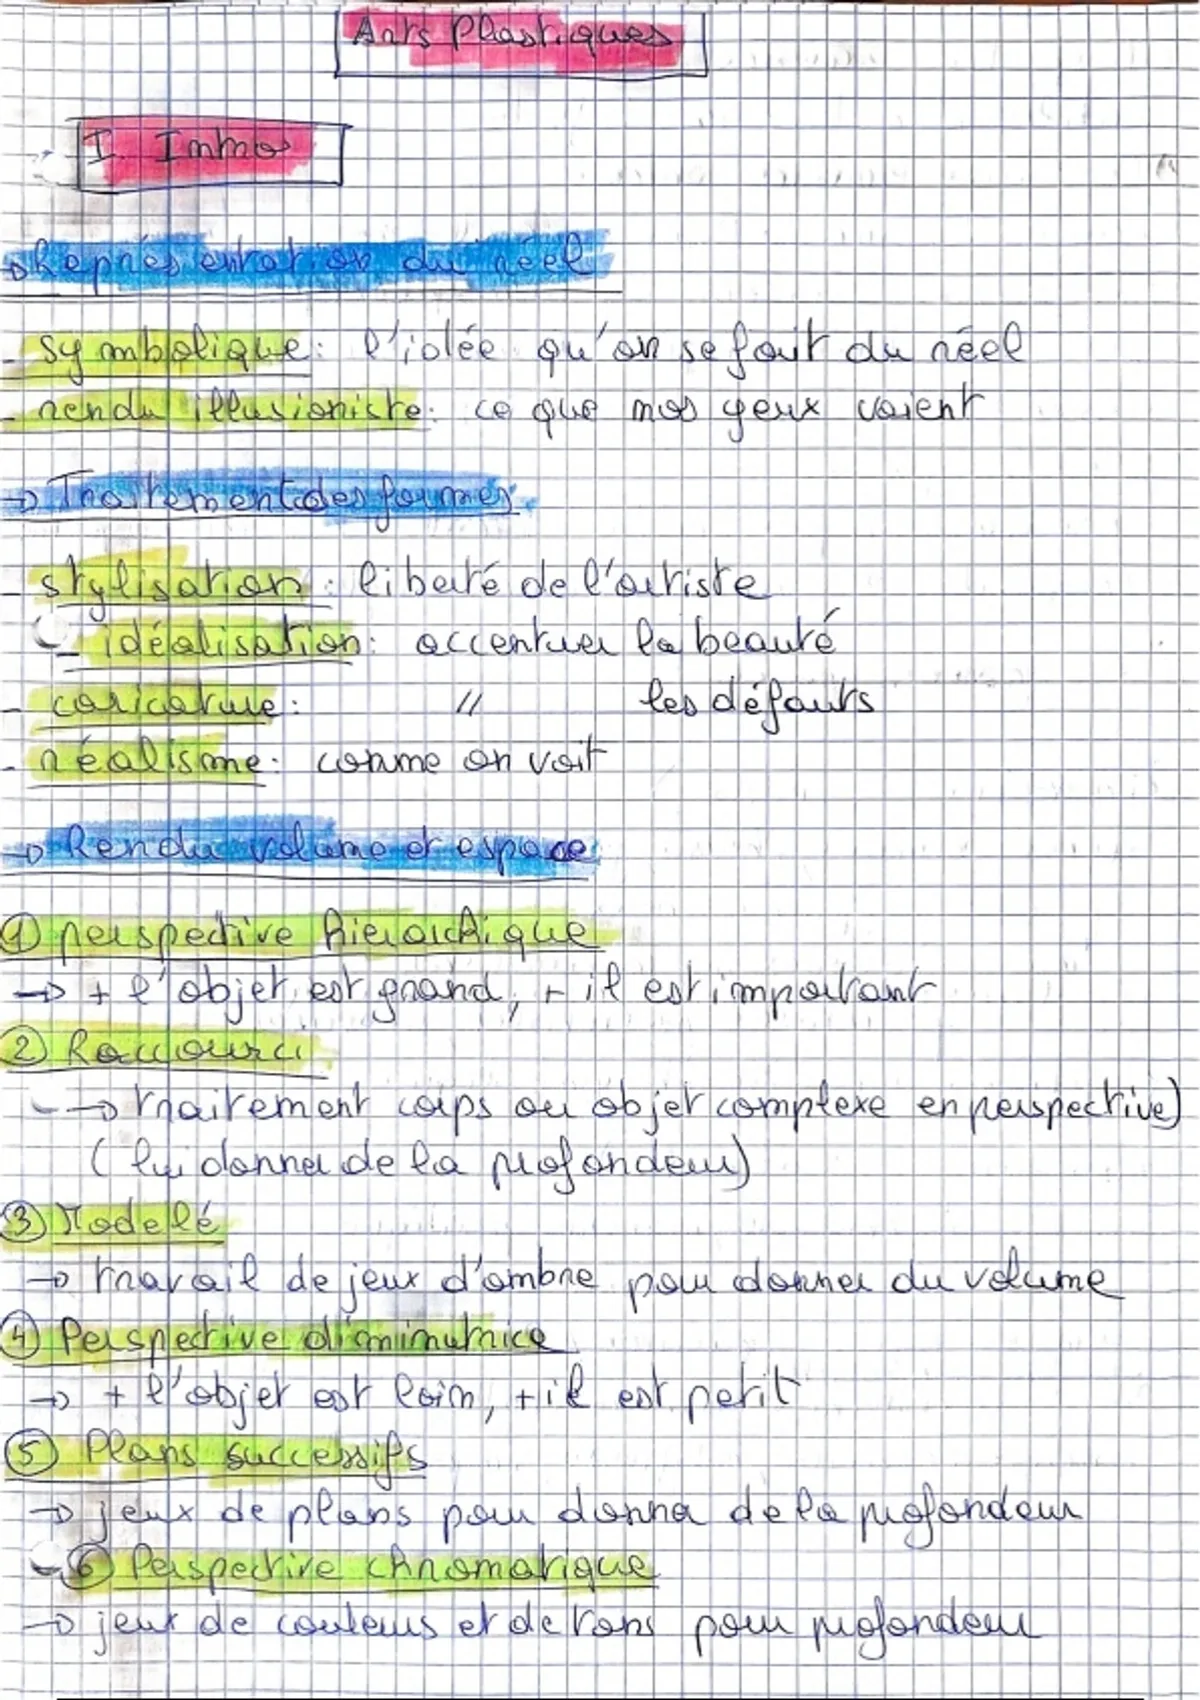 Arts Plastiques
I. Intro
→ Représentation du réel
- symbolique : l'idée qu'on se fait du réel
- rendu illusioniste : ce que nos yeux voient
→ Traitement des formes
- stylisation : liberté de l'artiste
- idéalisation : accentuer la beauté
- caricature : // les défauts
- réalisme : comme on voit
→ Rendu volume et espace
① perspective hierarchique
→ + l'objet est grand, + il est important
② Raccourci
→ traitement corps ou objet complexe en perspective)
(lui donner de la profondeur)
③ Modelé
→ travail de jeux d'ombre pour donner du volume
④ Perspective diminutrice
→ + l'objet est loin, + il est petit
⑤ Plans successifs
→ jeux de plans pour donner de la profondeur
⑥ Perspective chromatique
→ jeux de couleurs et de tons pour profondeur